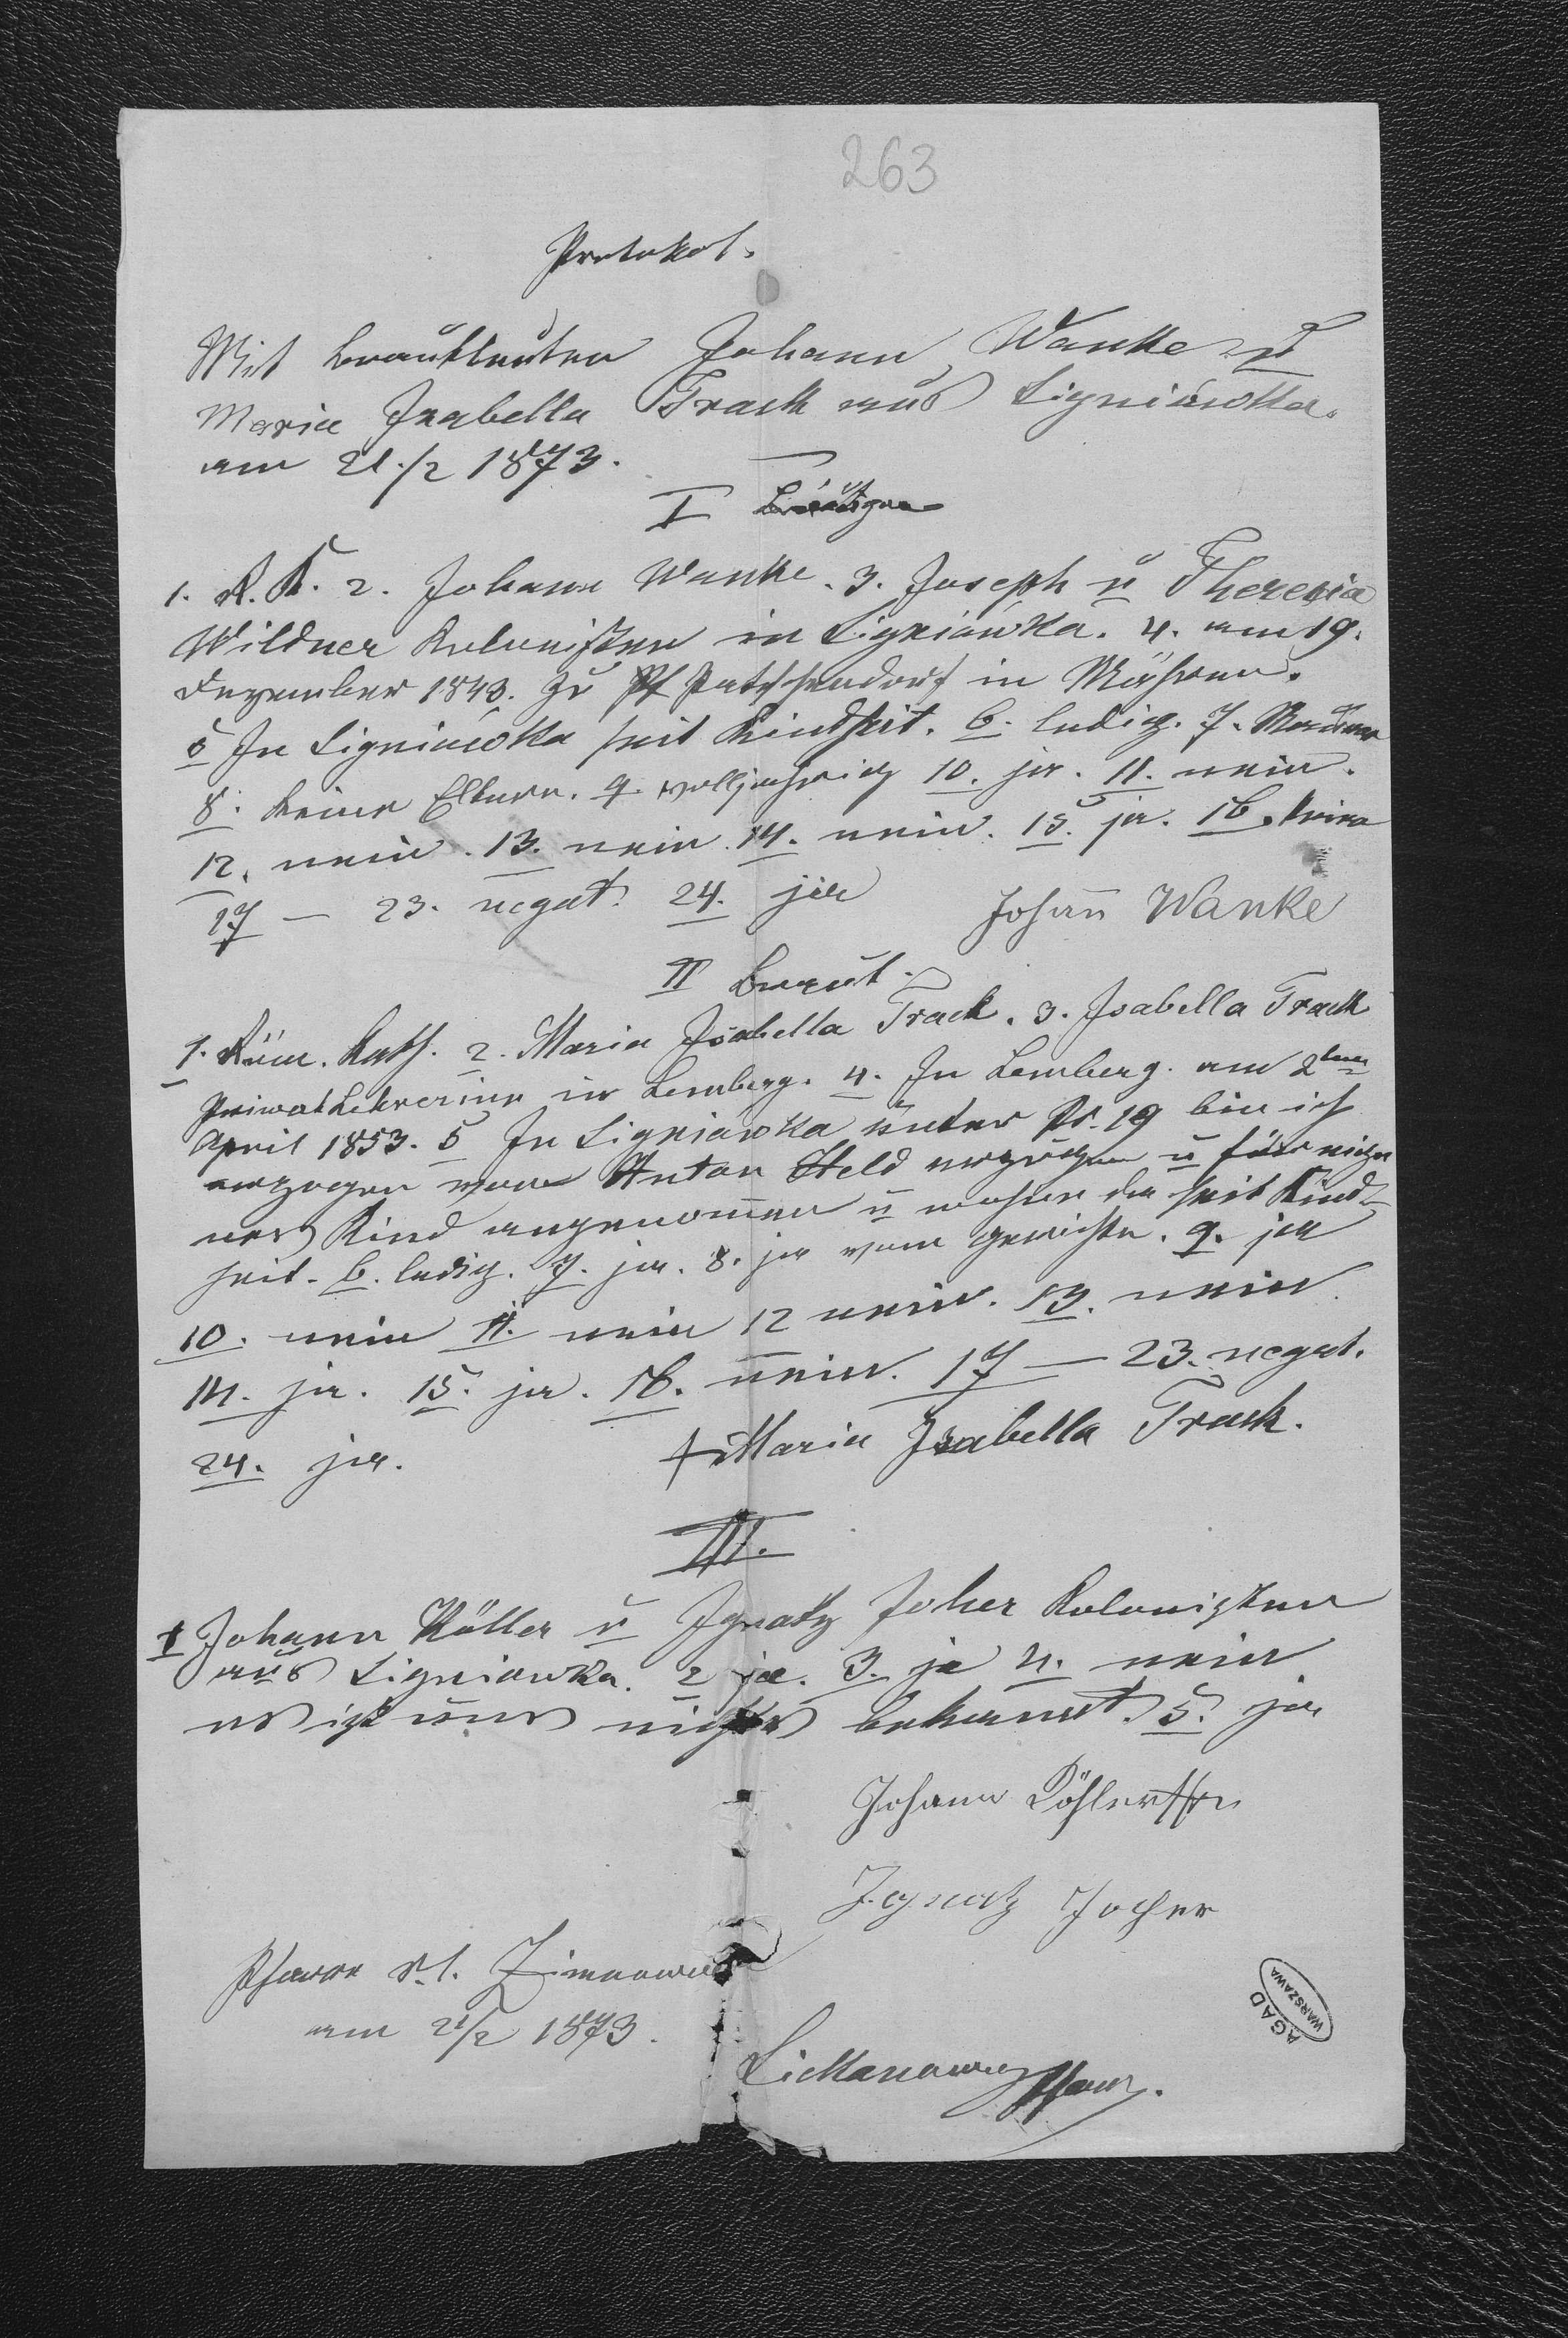 263
Protokol.
Mit Brautleuten Johann Wanke u
Maria Isabella Track aus Ligniówka.
am 21./2 1873.
I Bräutigam
1. R. K. 2. Johann Wanke. 3. Joseph u Theresia
Wildner Kolonisten in Ligniówka. 4. am 19.
Dezember 1843. zu Patschendorf in Mähren.
5 In Ligniówka seit Kindheit. 6. ledig. 7.
8. keine Eltern. 9. volljährig 10. ja. 11. nein.
12. nein. 13. nein 14. nein. 15. ja. 16. keine
17 — 23. negat. 24. ja
Johann Wanke
II Braut.
1. Röm. Kath. 2. Maria Isabella Track. 3. Isabella Track
Priwat Lehrerinn in Lemberg. 4. In Lemberg. am 2ten
April 1853. 5 In Ligniówka unter Nr. 19 bin ich
erzogen von Anton Held erzogen u für eige
nes Kind angenommen u wohne da seit Kind-
heit. 6. ledig. 7. ja. 8. ja vom Gerichte. 9. ja
10. nein 11. nein 12 nein. 13. nein.
14. ja. 15. ja. 16. nein. 17 — 23. negat.
24. ja.
+ Maria Isabella Track.
III.
1 Johann Köller u Ignatz Joher Kolonisten
aus Ligniowka. 2 ja. 3. ja 4. nein
es ist uns nichts bekannt. 5. ja
Johann Köhler
Ignatz Jocher
Pfarre r. l. Zimnawoda
am 21/2 1873.
Lickanawicz Pfarr.
AGAD
WARSZAWA